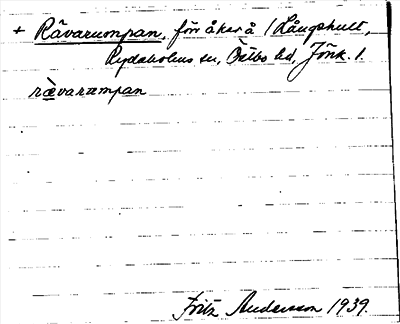 + Råvarumpan, förr åker å /Långhult,
Rydaholms sn, Östbo hd, Jönk. l.
rævarumpan
Fritz Andersson 1939.